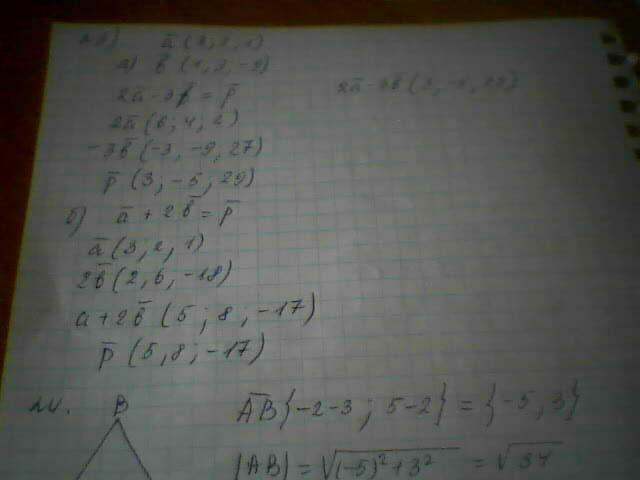 a̅ (3, 2, 1)
а) b̅ (1, 3, -9)
2a̅ - 3b̅ = p̅
2a̅ (6; 4, 2)
-3b̅ (-3, -9, 27)
p̅ (3; -5; 29)
2a̅ - 3b̅ (3, -5, 29)
б) a̅ + 2b̅ = p̅
a̅ (3; 2, 1)
2b̅ (2, 6, -18)
a + 2b̅ (5; 8; -17)
p̅ (5, 8; -17)
B
A̅B̅ {-2-3; 5-2} = {-5, 3}
|AB| = √((-5)² + 3²) = √34